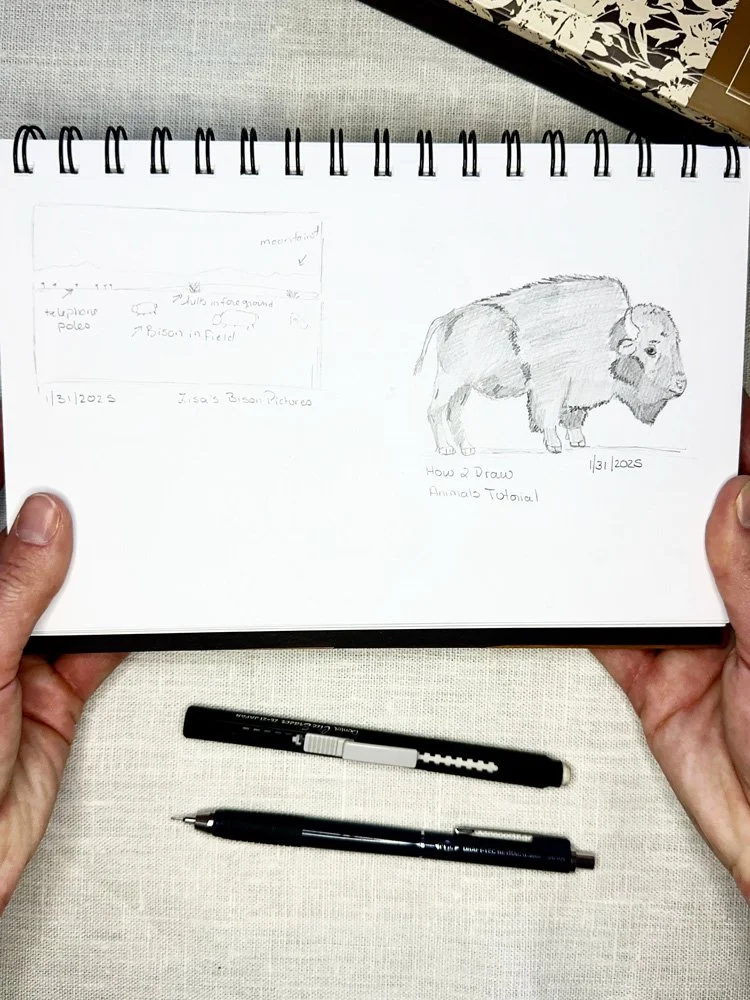 mountains
telephone
poles
↗ tufts in foreground
↗ Bison in Field
1/31/2025
Lisa's Bison Pictures
How 2 Draw
Animals Tutorial
1/31/2025
Clic Eraser
JAPAN